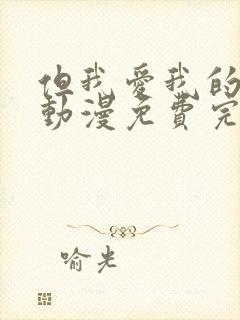 但我愛我的
動漫免費完
喻光